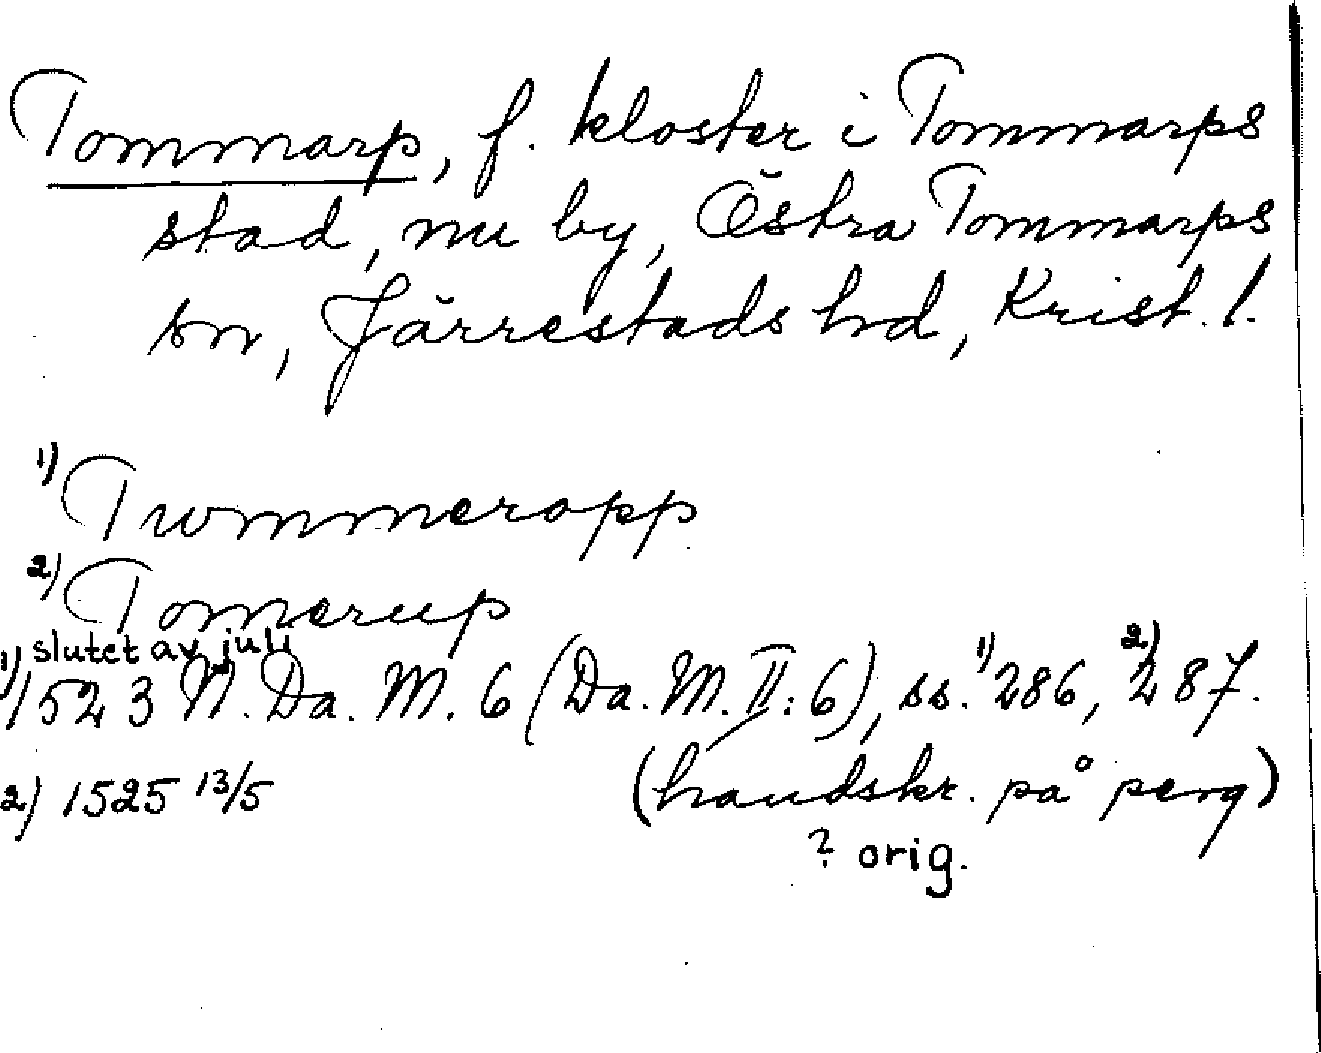 Tommarp, f. kloster i Tommarps
stad, nu by, Östra Tommarps
sn, Järrestads hd, Krist. l.
1) Twmmeropp
2) Tomerup
slutet av juli
1) 1523 N. Da. M. 6 (Da. M. II: 6), ss. 1) 286, 2) 287.
2) 1525 13/5 (handskr. på perg)
? orig.